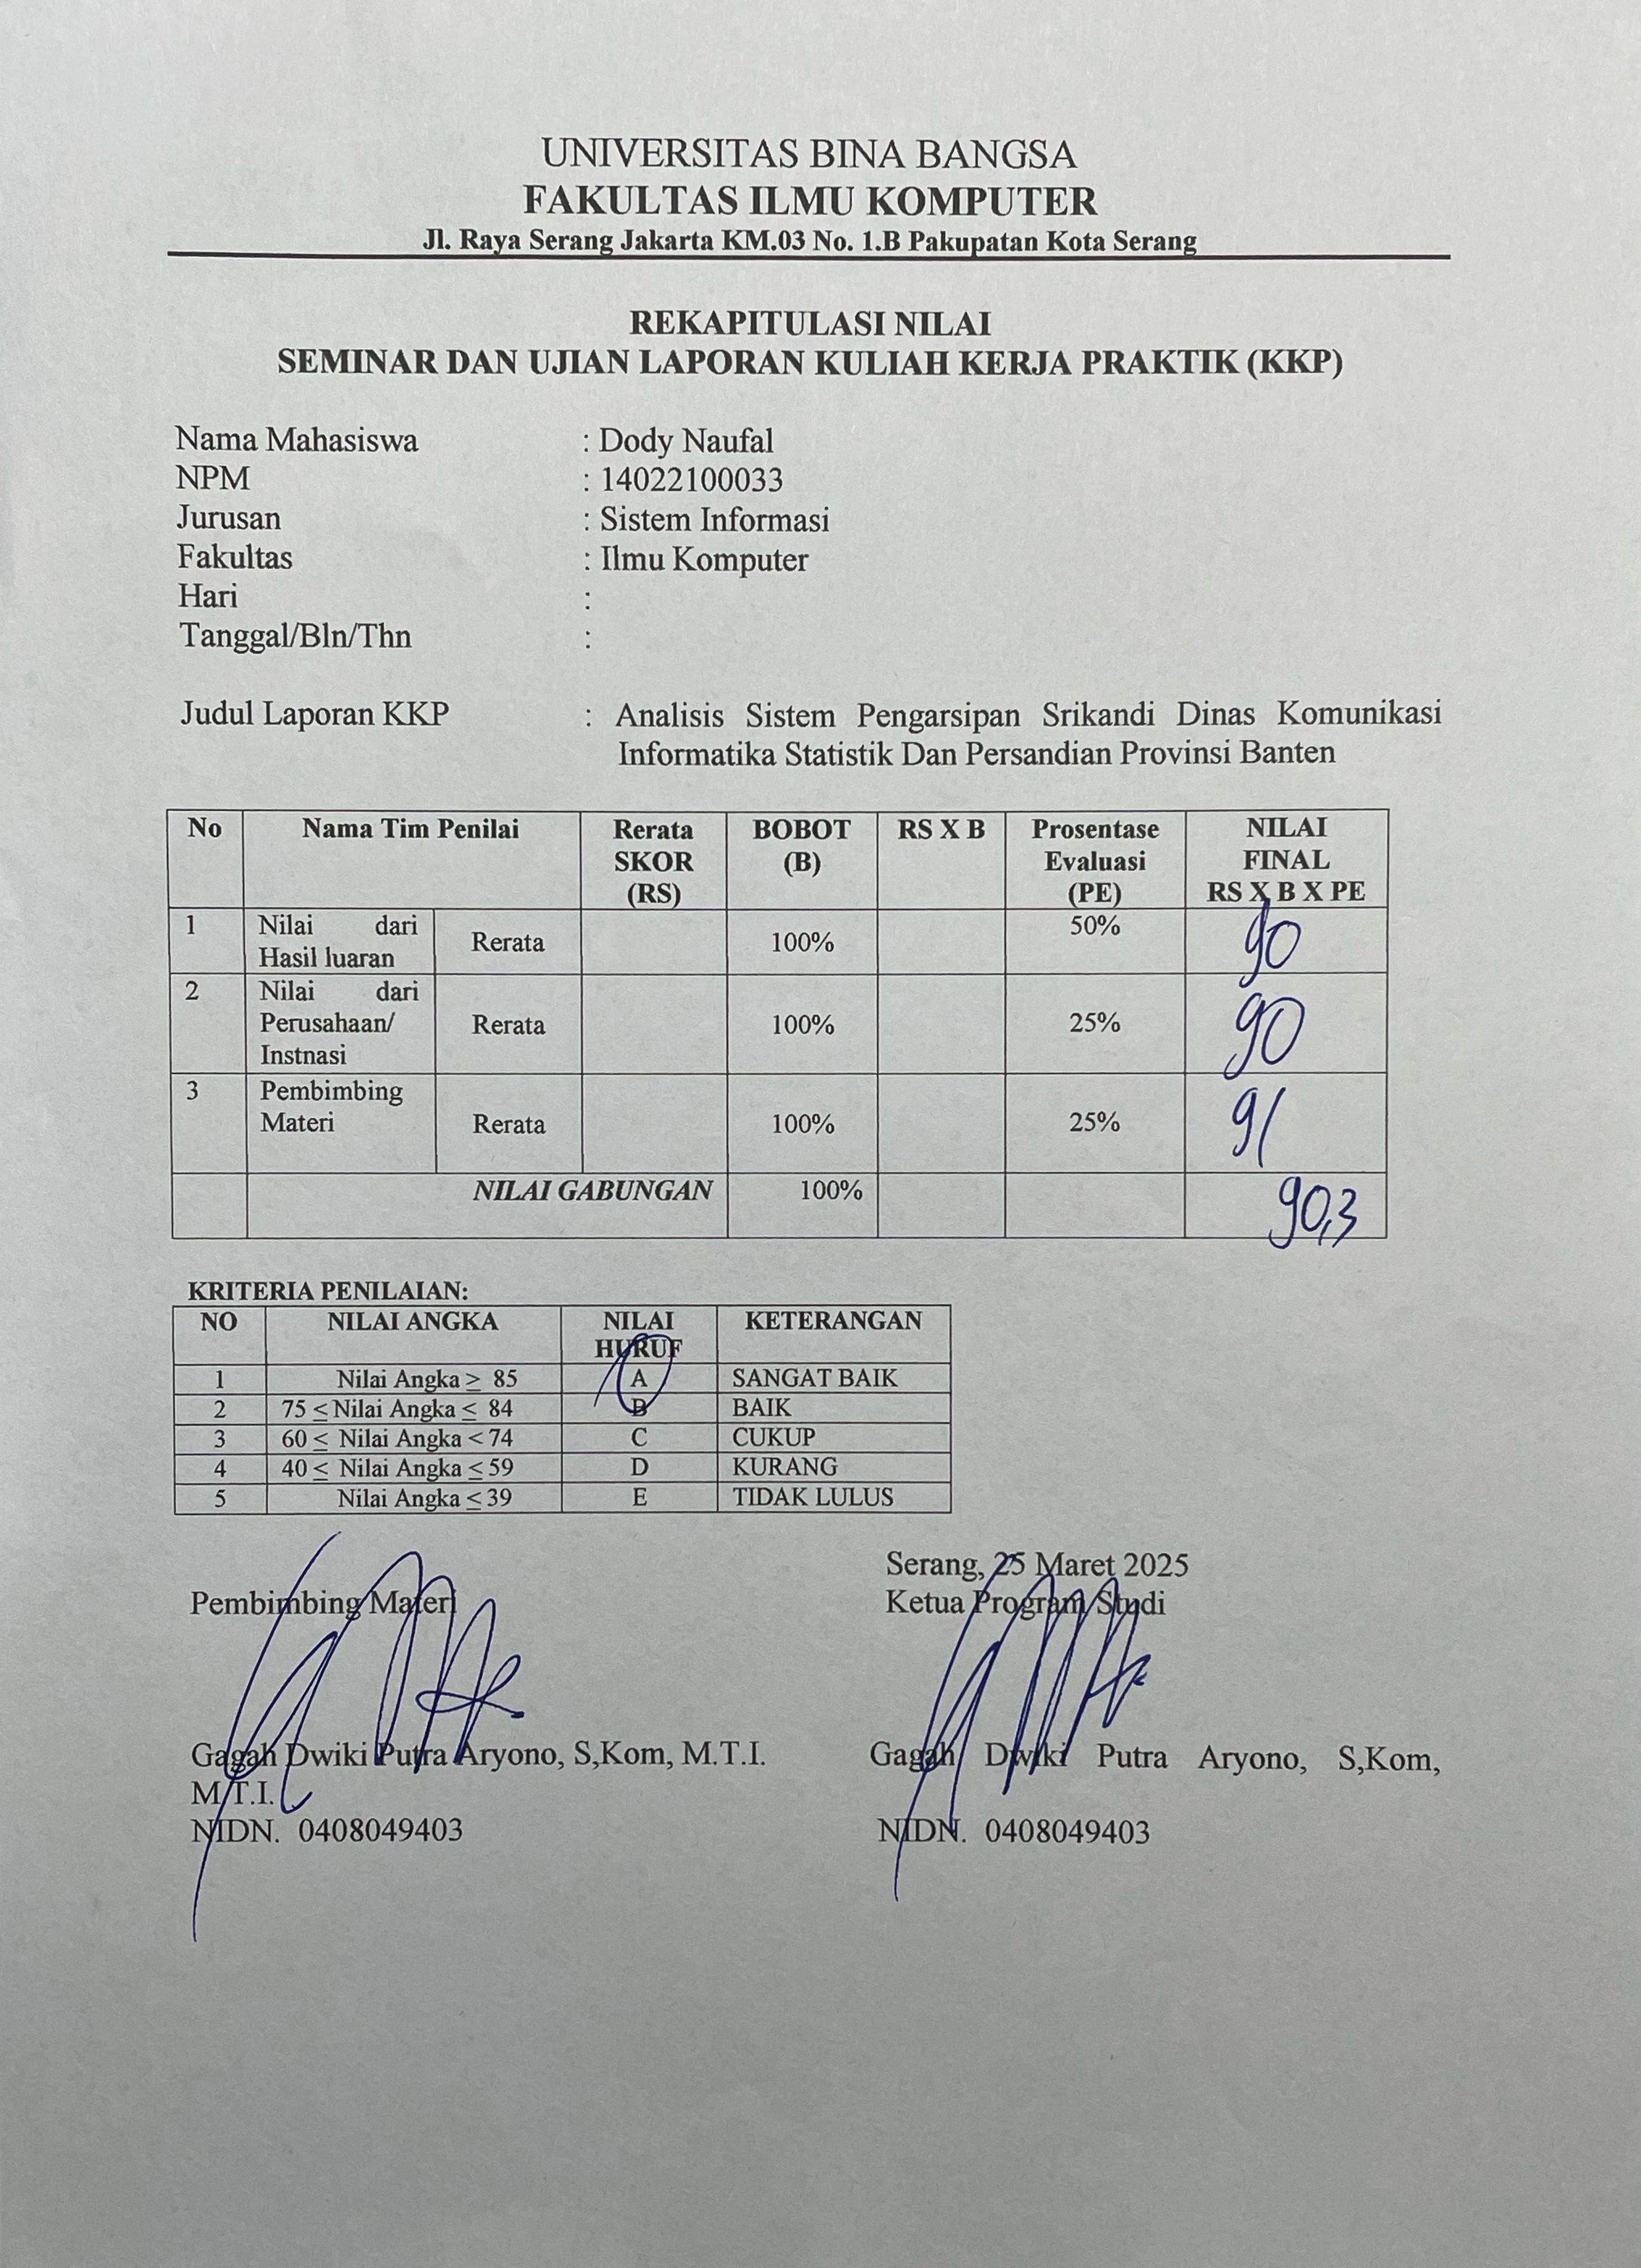 UNIVERSITAS BINA BANGSA
FAKULTAS ILMU KOMPUTER
Jl. Raya Serang Jakarta KM.03 No. 1.B Pakupatan Kota Serang
REKAPITULASI NILAI
SEMINAR DAN UJIAN LAPORAN KULIAH KERJA PRAKTIK (KKP)
Nama Mahasiswa : Dody Naufal
NPM : 14022100033
Jurusan : Sistem Informasi
Fakultas : Ilmu Komputer
Hari :
Tanggal/Bln/Thn :
Judul Laporan KKP : Analisis Sistem Pengarsipan Srikandi Dinas Komunikasi
Informatika Statistik Dan Persandian Provinsi Banten
No Nama Tim Penilai Rerata SKOR (RS) BOBOT (B) RS X B Prosentase Evaluasi (PE) NILAI FINAL RS X B X PE
1 Nilai dari Hasil luaran Rerata 100% 50% 90
2 Nilai dari Perusahaan/ Instnasi Rerata 100% 25% 90
3 Pembimbing Materi Rerata 100% 25% 91
NILAI GABUNGAN 100% 90,3
KRITERIA PENILAIAN:
NO NILAI ANGKA NILAI HURUF KETERANGAN
1 Nilai Angka ≥ 85 A SANGAT BAIK
2 75 ≤ Nilai Angka ≤ 84 B BAIK
3 60 ≤ Nilai Angka < 74 C CUKUP
4 40 ≤ Nilai Angka ≤ 59 D KURANG
5 Nilai Angka ≤ 39 E TIDAK LULUS
Serang, 25 Maret 2025
Pembimbing Materi Ketua Program Studi
Gagah Dwiki Putra Aryono, S,Kom, M.T.I. Gagah Dwiki Putra Aryono, S,Kom,
M.T.I.
NIDN. 0408049403 NIDN. 0408049403